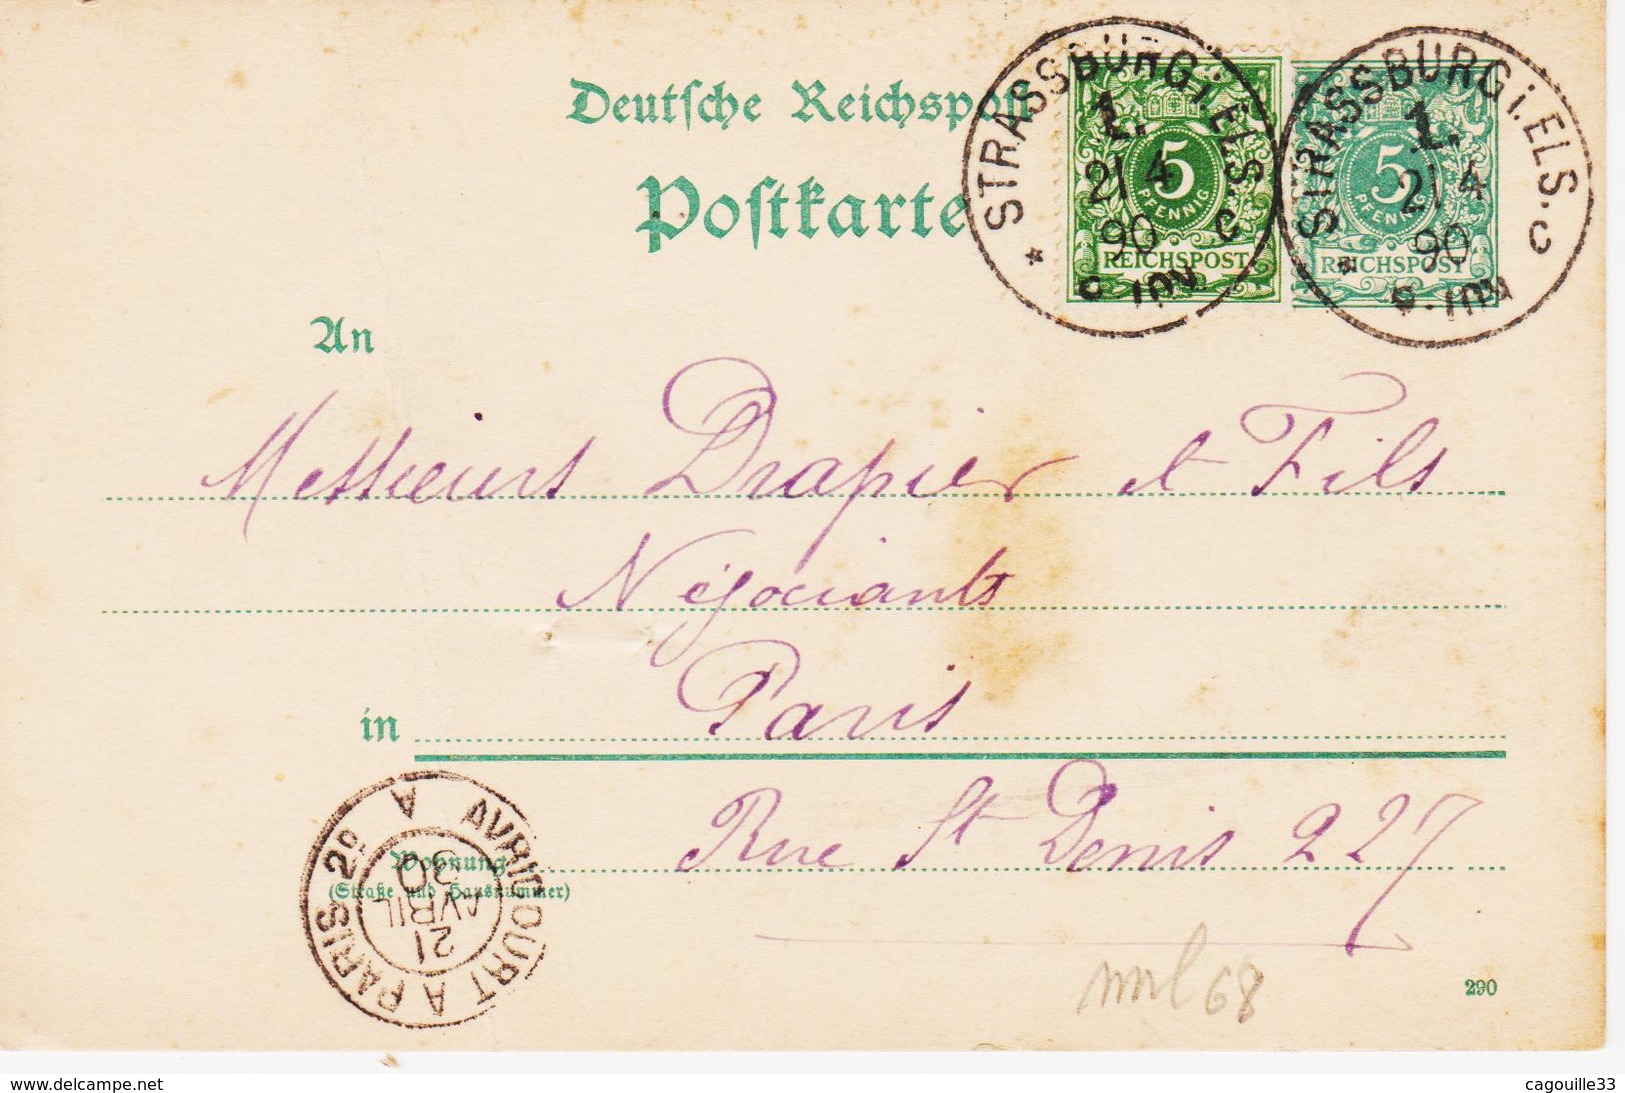 Deutsche Reichspost
Postkarte
STRASSBURG i. ELS. C
1.
21 4
90
5
PFENNIG
REICHSPOST
STRASSBURG i. ELS. C
1.
21 4
90
5
PFENNIG
REICHSPOST
An
Messieurs Drapier et Fils
Négociants
in Paris
Rue St Denis 227
Wohnung
(Straße und Hausnummer)
AVRICOURT A PARIS 2º A
21
AVRIL
90
68
290
www.delcampe.net
cagouille33